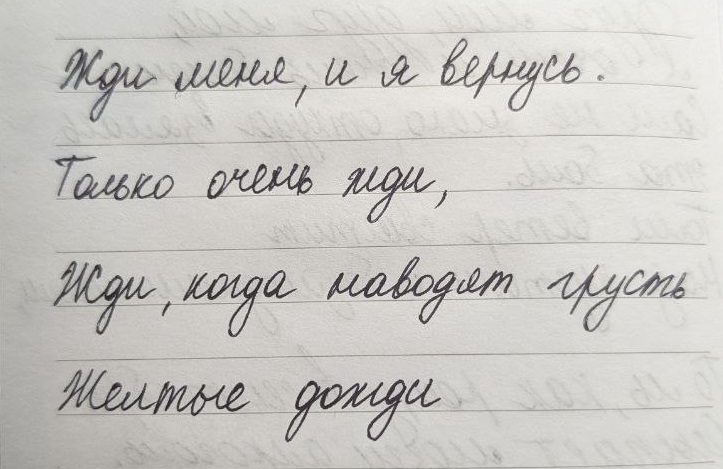 Жди меня, и я вернусь.
Только очень жди,
Жди, когда наводят грусть
Желтые дожди